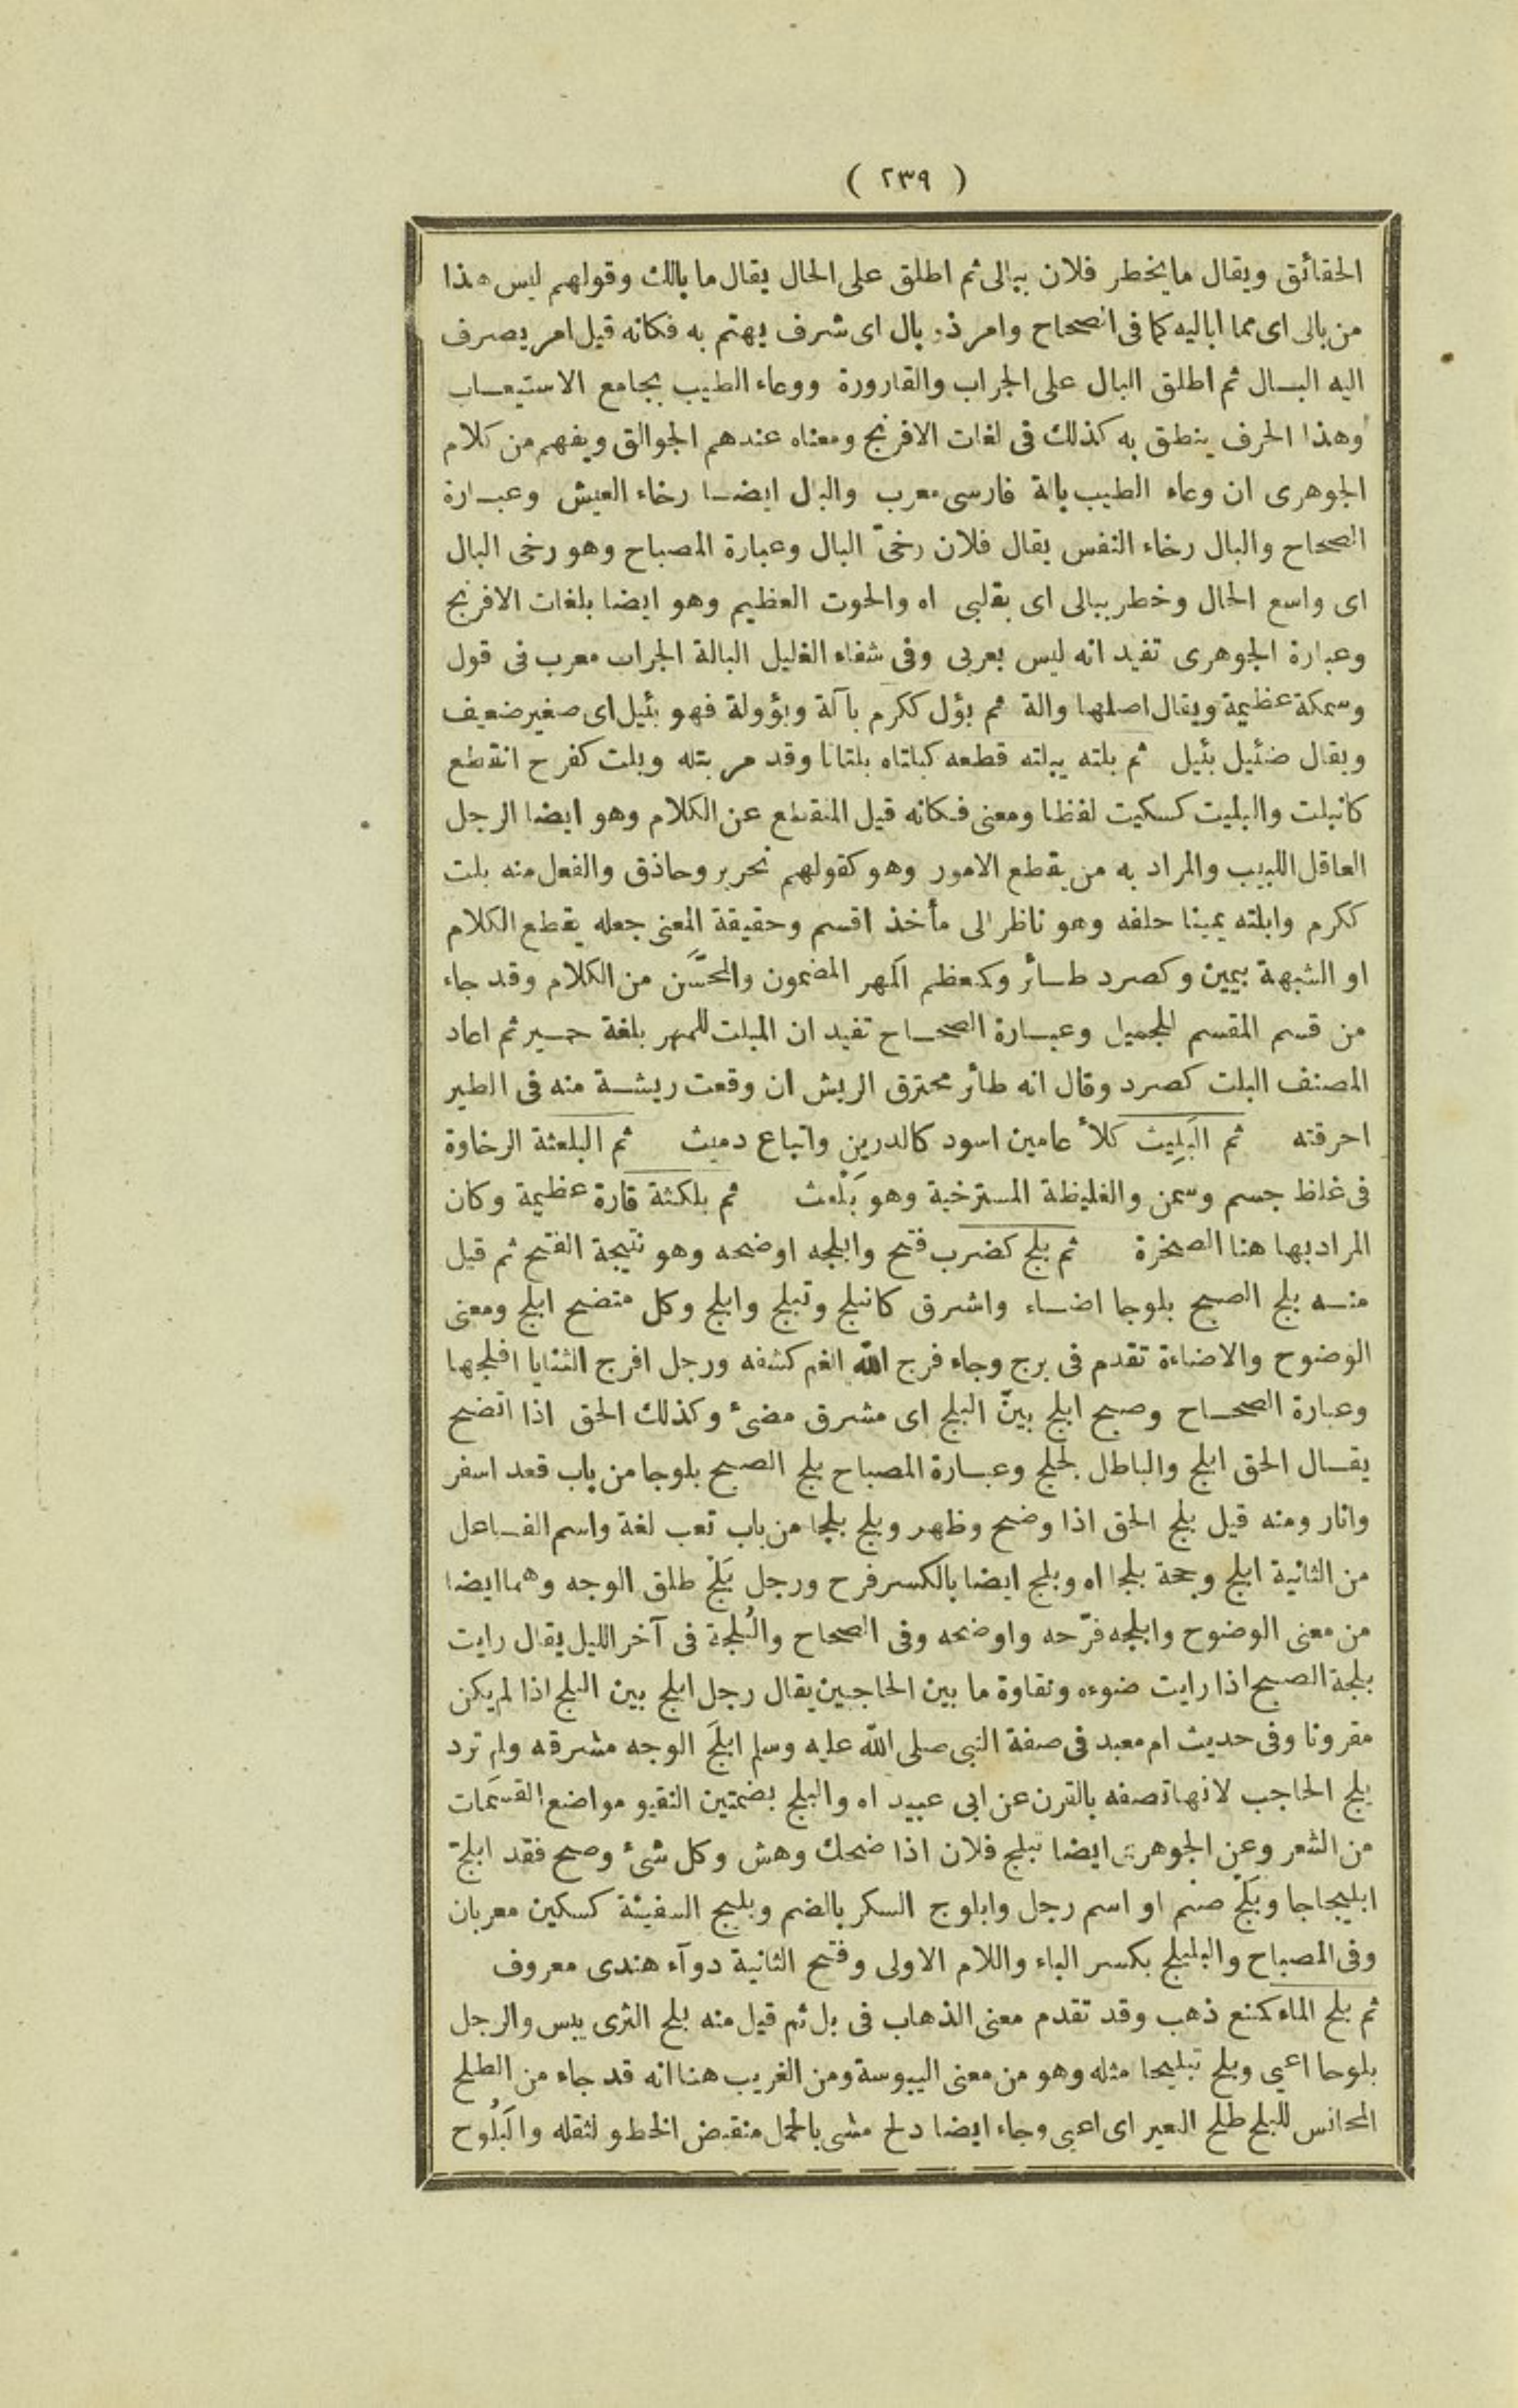 ( ٢٣٩ )
الحقائق ويقال ما يخطر فلان ببالى ثم اطلق على الحال يقال ما بالك وقولهم ليس هذا
من بالى اى مما اباليه كما فى الصحاح وامر ذو بال اى شرف يهتم به فكانه قيل امر يصرف
اليه البـال ثم اطلق البال على الجراب والقارورة ووعاء الطيب بجامع الاستيعـاب
وهذا الحرف ينطق به كذلك فى لغات الافرنج ومعناه عندهم الجوالق ويفهم من كلام
الجوهرى ان وعاء الطيب بالة فارسى معرب والبال ايضـا رخاء العيش وعبـارة
الصحاح والبال رخاء النفس يقال فلان رخىّ البال وعبارة المصباح وهو رخى البال
اى واسع الحال وخطر ببالى اى بقلبى اه والحوت العظيم وهو ايضا بلغات الافرنج
وعبارة الجوهرى تفيد انه ليس بعربى وفى شفاء الغليل البالة الجراب معرب فى قول
وسمكة عظيمة ويقال اصلها والة ثم بؤل ككرم بآلة وبؤولة فهو بئيل اى صغير ضعيف
ويقال ضئيل بئيل ثم بلته يبلته قطعه كبلتاه بلتانا وقد مر بتله وبلت كفرح انقطع
كانبلت والبليت كسكيت لفظا ومعنى فكانه قيل المنقطع عن الكلام وهو ايضا الرجل
العاقل اللبيب والمراد به من يقطع الامور وهو كقولهم نحرير وحاذق والفعل منه بلت
ككرم وابلته يمينا حلفه وهو ناظر الى مأخذ اقسم وحقيقة المعنى جعله يقطع الكلام
او الشبهة بيمين وكصرد طـائر وكمعظم المهر المضمون والمحسَّن من الكلام وقد جاء
من قسم المقسم للجميل وعبـارة الصحـاح تفيد ان المبلت للمهر بلغة حمـير ثم اعاد
المصنف البلت كصرد وقال انه طائر محترق الريش ان وقعت ريشـة منه فى الطير
احرقته ثم البَلِيث كلأ عامين اسود كالدرين واتباع دميث ثم البلعثة الرخاوة
فى غلظ جسم وسمن والغليظة المسترخية وهو بَلْعث ثم بلكثة قارة عظيمة وكان
المراد بها هنا الصخرة ثم بلج كضرب فتح وابلجه اوضحه وهو نتيجة الفتح ثم قيل
منـه بلج الصبح بلوجا اضـاء واشرق كانبلج وتبلج وابلج وكل متضح ابلج ومعنى
الوضوح والاضاءة تقدم فى برج وجاء فرج الله الغم كشفه ورجل افرج الثنايا افلجها
وعبارة الصحـاح وصبح ابلج بينّ البلج اى مشرق مضىء وكذلك الحق اذا اتضح
يقـال الحق ابلج والباطل لجلج وعبـارة المصباح بلج الصبح بلوجا من باب قعد اسفر
وانار ومنه قيل بلج الحق اذا وضح وظهر وبلج بلجا من باب تعب لغة واسم الفـاعل
من الثانية ابلج وحجة بلجا اه وبلج ايضا بالكسر فرح ورجل بَلْج طلق الوجه وهما ايضا
من معنى الوضوح وابلجه فرّحه واوضحه وفى الصحاح والبُلجة فى آخر الليل يقال رايت
بلجة الصبح اذا رايت ضوءه ونقاوة ما بين الحاجبين يقال رجل ابلج بين البلج اذا لم يكن
مقرونا وفى حديث ام معبد فى صفة النبى صلى الله عليه وسلم ابلَجَ الوجه مشرقه ولم ترد
بلج الحاجب لانها تصفه بالقرن عن ابى عبيد اه والبلج بضمتين النقيو مواضع القسَمَات
من الشعر وعن الجوهرى ايضا تبلج فلان اذا ضحك وهش وكل شىء وضح فقد ابلجّ
ابليجاجا وبَلْج صنم او اسم رجل وابلوج السكر بالضم وبليج السفينة كسكين معربان
وفى المصباح والبليلج بكسر الباء واللام الاولى وفتح الثانية دوآء هندى معروف
ثم بلح الماء كمنع ذهب وقد تقدم معنى الذهاب فى بل ثم قيل منه بلح الثرى يبس والرجل
بلوحا اعيى وبلح تبليحا مثله وهو من معنى اليبوسة ومن الغريب هنا انه قد جاء من الطلح
المجانس للبلح طلح البعير اى اعيى وجاء ايضا دلح مشى بالحمل منقبض الخطو لثقله والبَلُوح